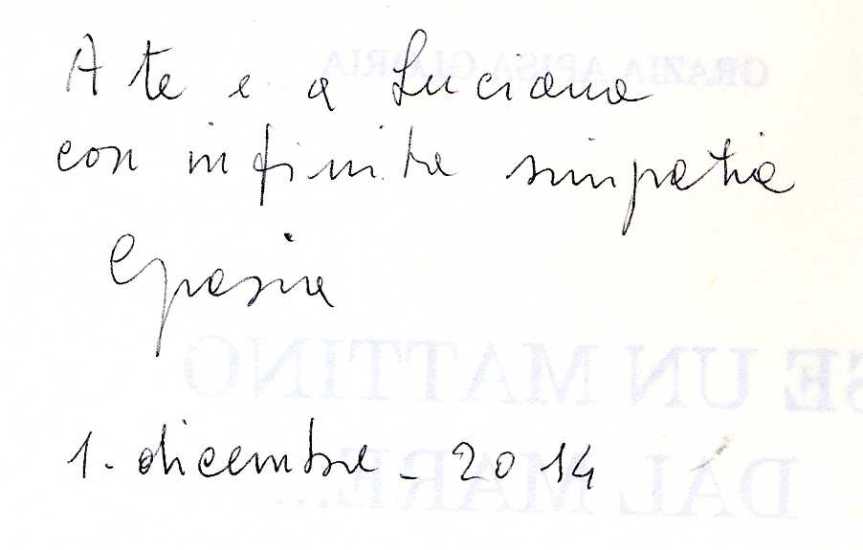 A te e a Luciana
con infinita simpatia
Grazia
1. dicembre - 2014
GRAZIA APISA GLORIA
SE UN MATTINO
DAL MARE...